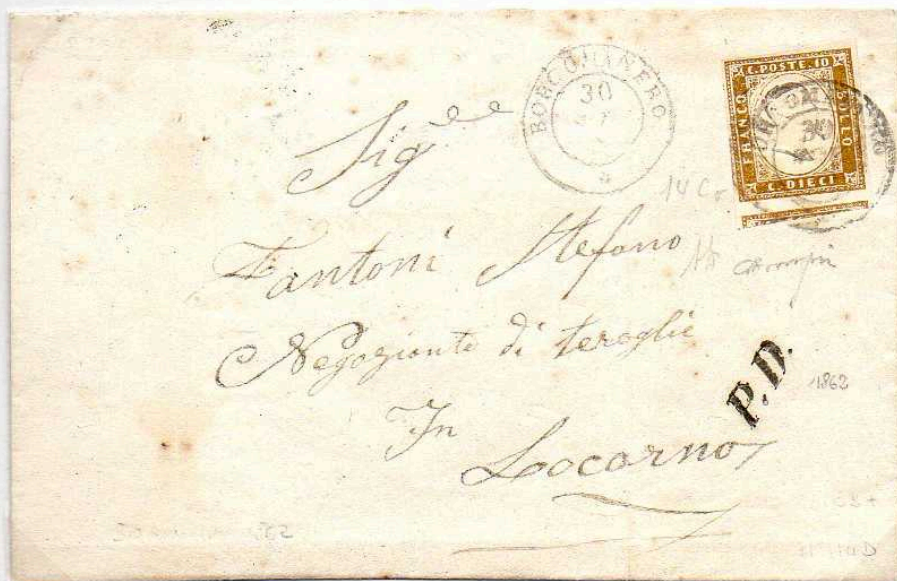 BORGOMANERO
30
C. POSTE. 10
FRANCO
BOLLO
C. DIECI
30
Sig.re
Fantoni Stefano
Negoziante di teraglie
In
Locarno
P.D.
1862